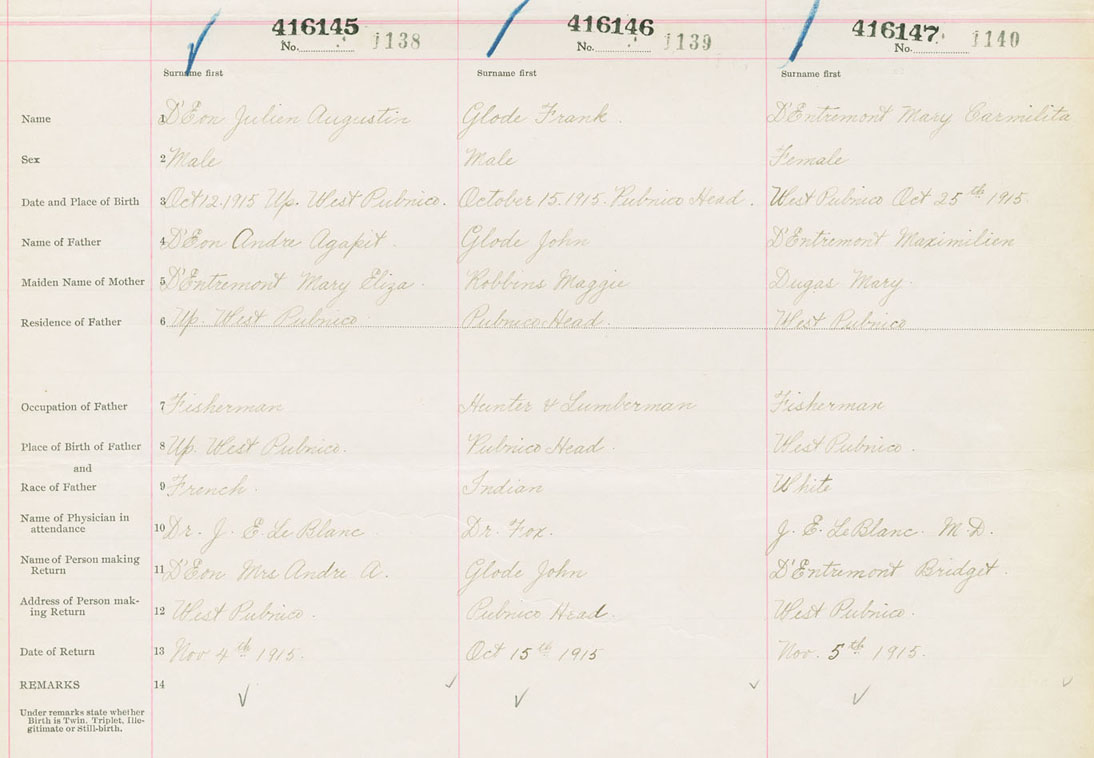 416145 416146 416147
No. 1138 No. 1139 No. 1140
Surname first Surname first Surname first
Name 1 D'Eon Julien Augustin Glode Frank. D'Entremont Mary Carmilita
Sex 2 Male Male Female
Date and Place of Birth 3 Oct 12. 1915 Up. West Pubnico. October 15. 1915. Pubnico Head. West Pubnico Oct 25th 1915.
Name of Father 4 D'Eon Andre Agapit. Glode John D'Entremont Maximilien
Maiden Name of Mother 5 D'Entremont Mary Eliza. Robbins Maggie Dugas Mary.
Residence of Father 6 Up. West Pubnico Pubnico Head. West Pubnico
Occupation of Father 7 Fisherman Hunter & Lumberman Fisherman
Place of Birth of Father 8 Up. West Pubnico. Pubnico Head. West Pubnico.
and
Race of Father 9 French. Indian White
Name of Physician in
attendance 10 Dr. J. E. Le Blanc Dr. Fox. J. E. LeBlanc. M.D.
Name of Person making
Return 11 D'Eon Mrs Andre A. Glode John D'Entremont Bridget.
Address of Person mak-
ing Return 12 West Pubnico. Pubnico Head. West Pubnico.
Date of Return 13 Nov 4th 1915. Oct 15th 1915 Nov. 5th 1915.
REMARKS 14
Under remarks state whether
Birth is Twin, Triplet, Ille-
gitimate or Still-birth.